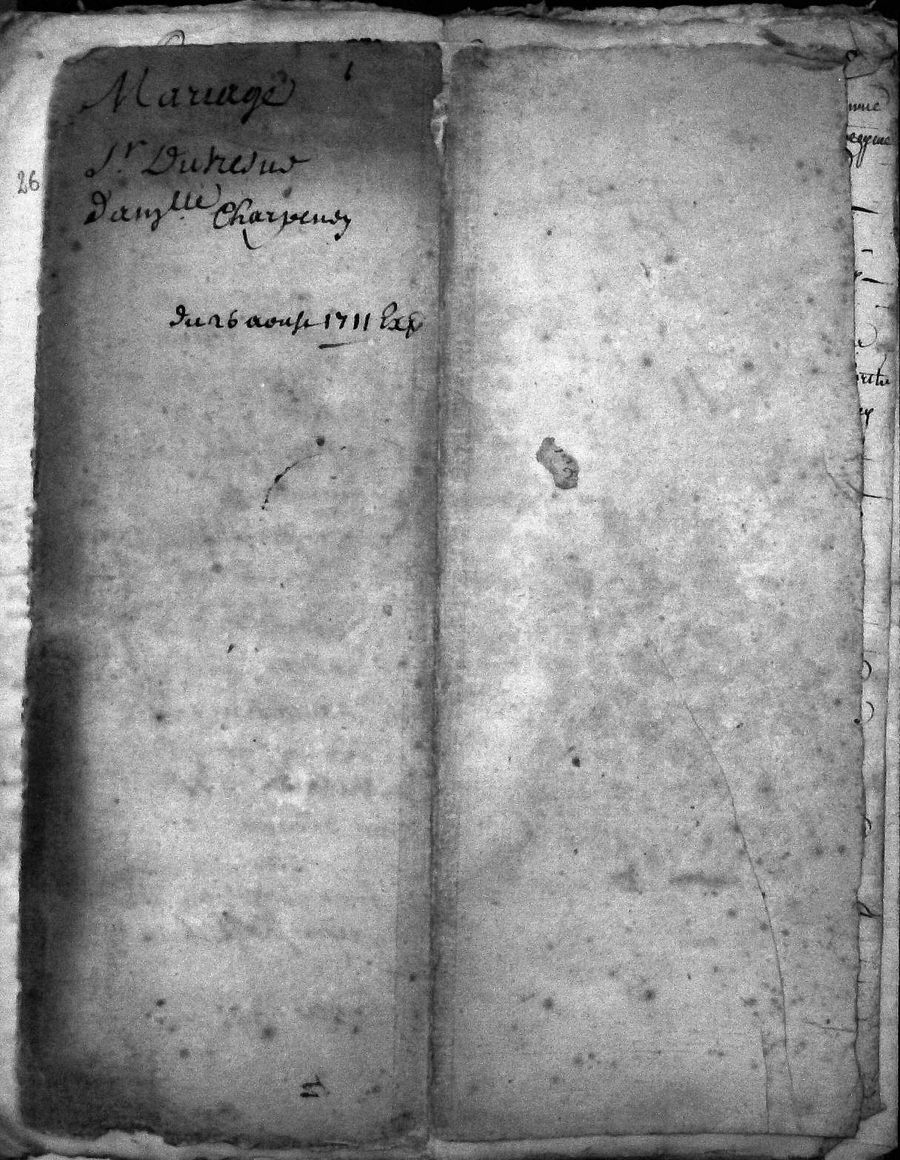 Mariage
Sr. Dufresne
Damlle Charpeney
26
du 26 aoust 1711 Exp